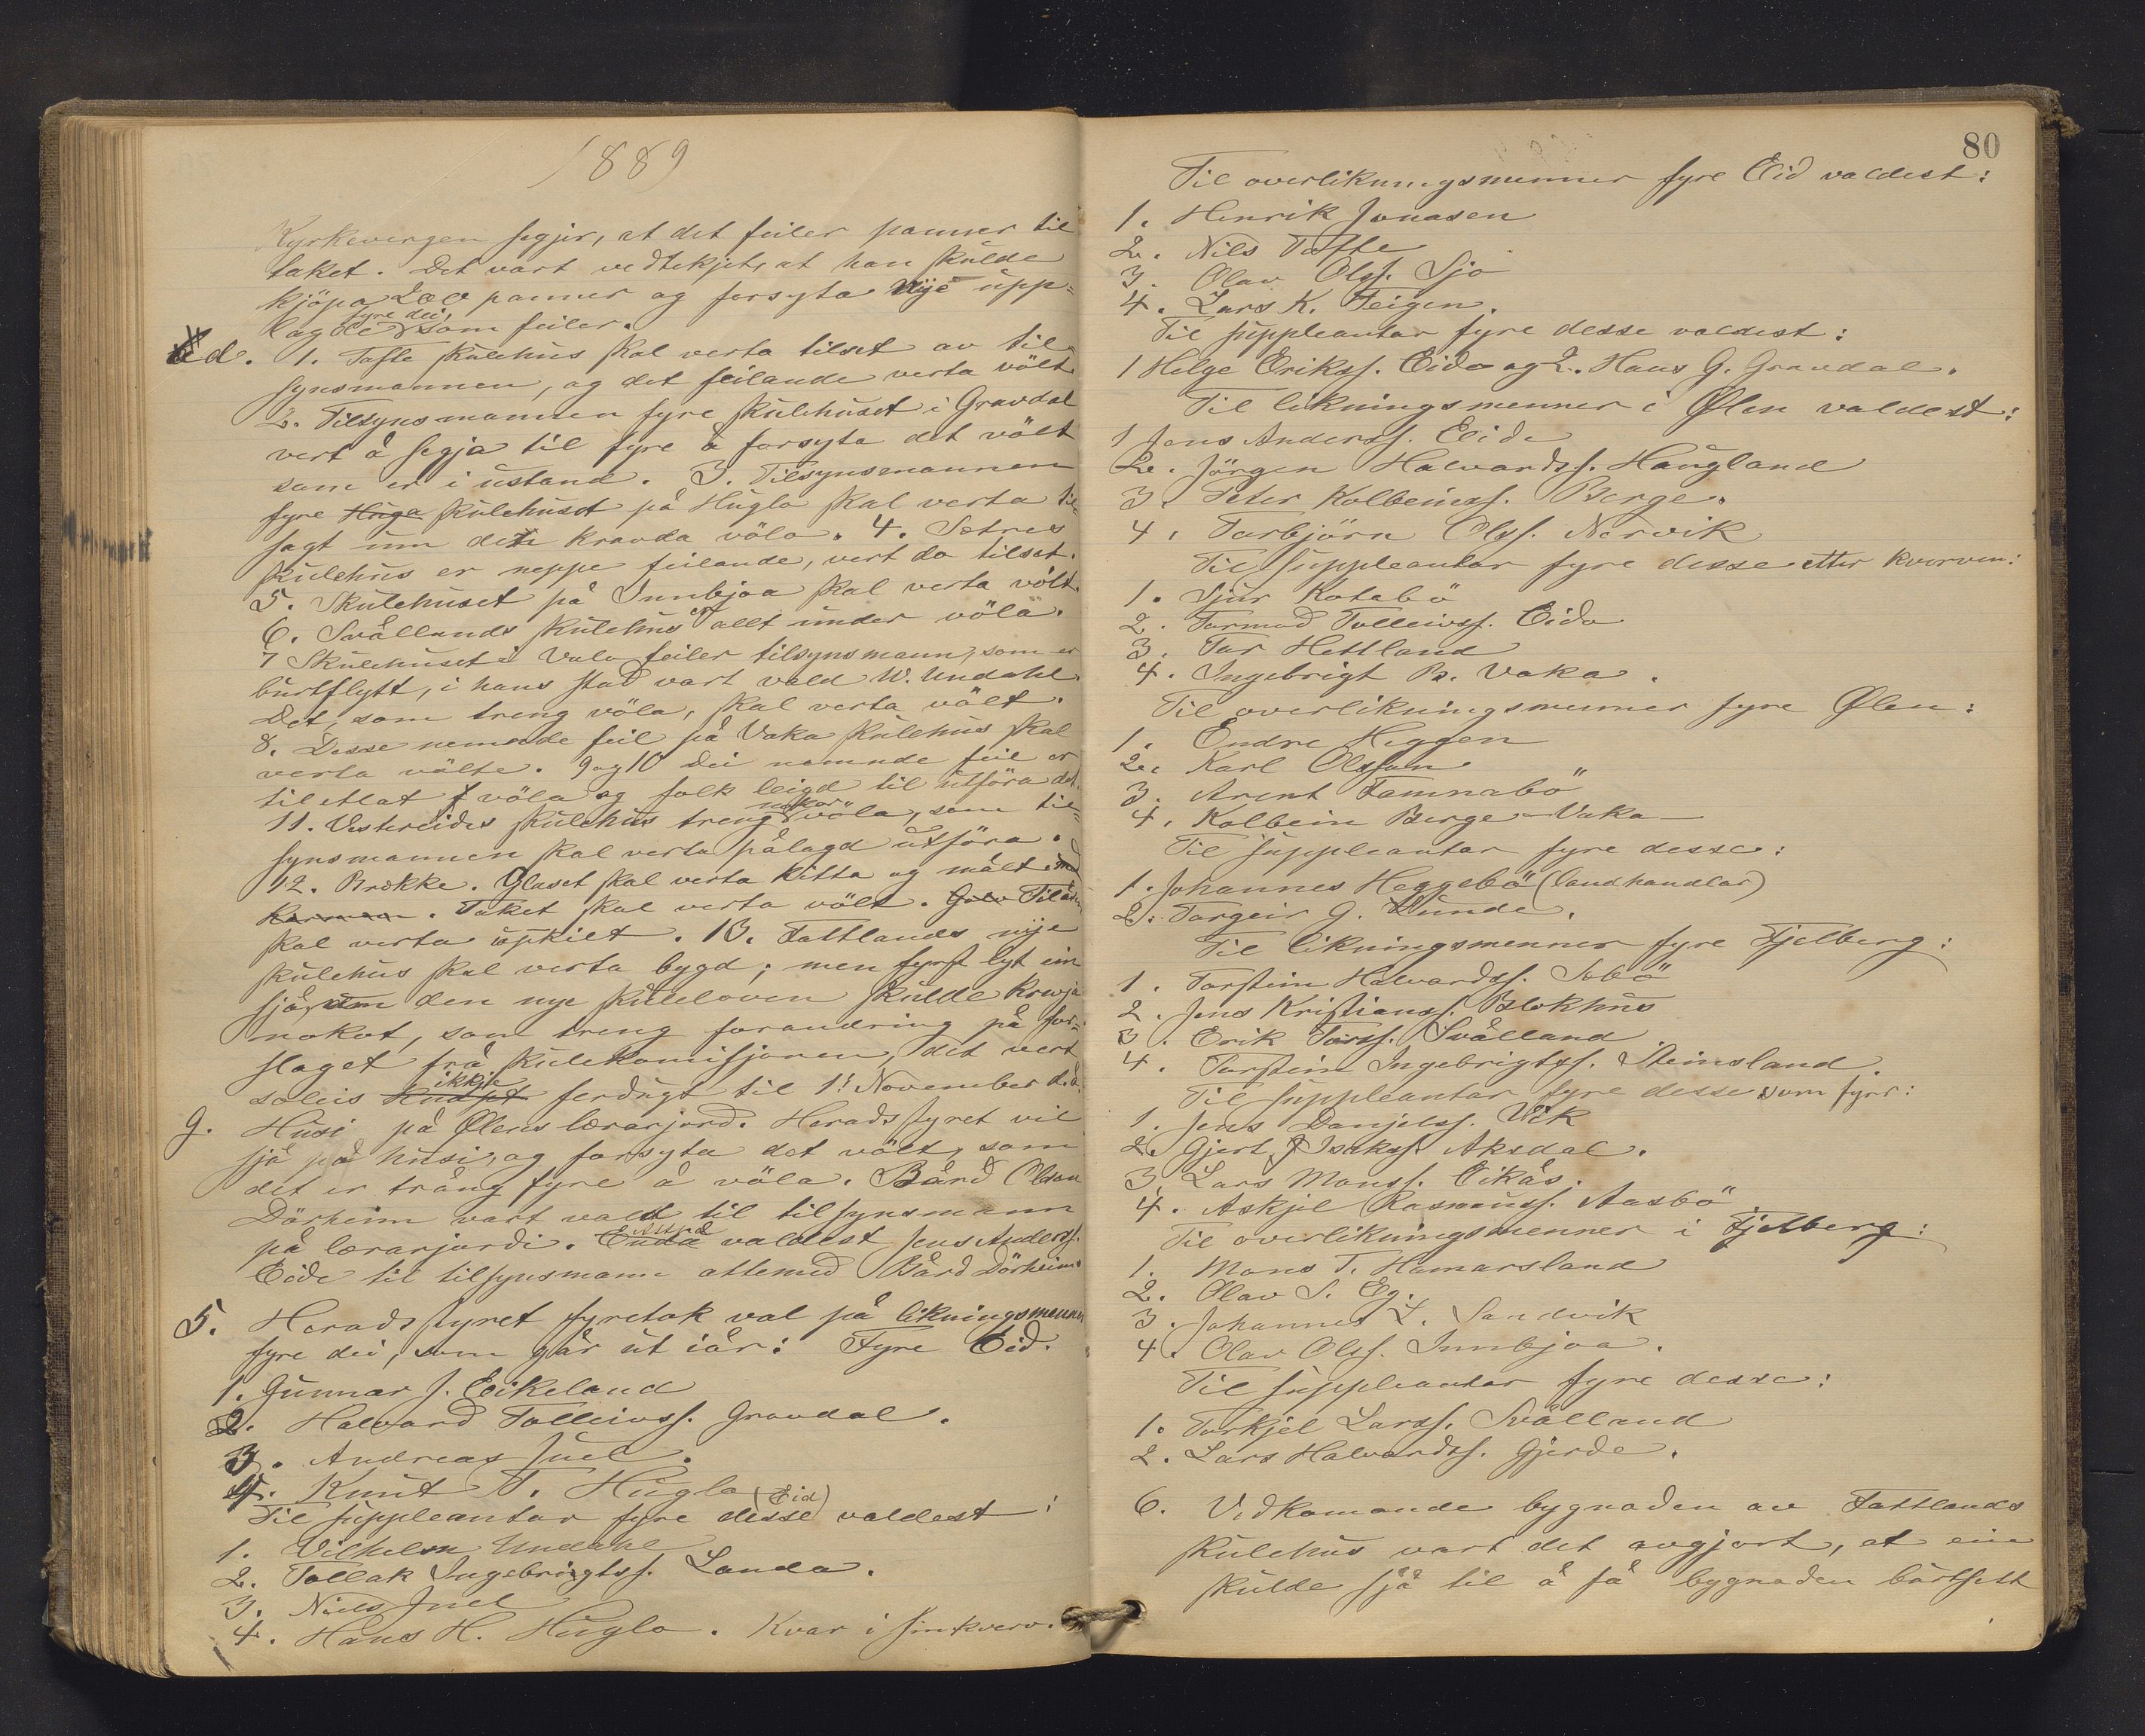 1889
Kyrkevergen segjer, at det feiler panner til
taket. Det vart vedtekjet, at han skulde
kjöpa 200 panner og forsyta nye upp=
lagde fyre dei, som feiler.
d. 1. Tofte skulehus skal verta tilset av til
synsmannen, og det feilande verta völt.
2. Tilsynsmannen fyre skulehuset i Gravdal
vert å segja til fyre å forsyta det völt
som er i ustand. 3. Tilsynsmannen
fyre Huga skulehuset på Hugla skal verta til
sagt um dette kravda völa. 4. Sætres
skulehus er neppe feilande, vert då tilset.
5. Skulehuset på Innbjoa skal verta völt.
6. Svållands skulehus er allt under völa.
7 Skulehuset i Valo feiler tilsynsmann, som er
burtflytt, i hans stad vart vald W. Undahl.
Det, som treng völa, skal verta völt.
8. Desse nemnde feil på Vaka skulehus skal
verta völte. 9 og 10 Dei nemnde feil er
tiletlat å völa og folk leigd til utföra det.
11. Vestreides skulehus treng nokor völa, som til=
synsmannen skal verta pålagd utföra.
12. Brekke. Glaset skal verta kitta og målt med
karmen. Taket skal verta völt. Golv Tilåen
skal verta upkilt. 13. Tattlands nye
skulehus skal verta bygd; men fyrst lyt ein
sjå, um den nye skuleloven skulde krevja
nokot, som treng forandring på for=
slaget frå skulekomissjonen, det vert
soleis ikkje ferdugt til 1st November d. å.
g. Husi på Ølens lærarjord. Heradsstyret vil
sjå på husi, og forsyta det völt, som
det er trång fyre å völa. Bård Olson
Dörheim vart vald til tilsynsmann
på lærarjordi. Attpå valdest Jens Anderss.
Eide til tilsynsmann attmed Bård Dörheim.
5. Heradsstyret fyretok val på likningsmenner
fyre dei, som går ut iår: Fyre Eid.
1. Gunnar J. Eikeland
2. Halvard Tolleivss. Gravdal.
3. Andreas Juel.
4. Knut T. Hugla (Eid)
Til suppleantar fyre desse valdest:
1. Vilhelm Undahl
2. Tollak Ingebrigtss. Landa.
3. Niels Juel
4. Hans H. Hugla. Kvar i sin kverv.
80
Til overlikningsmenner fyre Eid valdest:
1. Henrik Jonasen
2. Nils Tofte
3. Olav Olss. Sjo
4. Lars K. Teigen.
Til suppleantar fyre desse valdest:
1 Helge Erikss. Eide og 2. Hans G. Gravdal.
Til likningsmenner i Ølen valdest:
1 Jens Anderss. Eide
2. Jörgen Halvardss. Haugland
3. Peter Kolbeinss. Berge.
4. Torbjörn Olss. Nervik
Til suppleantar fyre desse etter kverven:
1. Sjur Kotabö
2. Tormod Tolleivss. Eide
3. Tor Hettland
4. Ingebrigt B. Vaka.
Til overlikningsmenner fyre Ølen:
1. Endre Heggen
2. Karl Olsson
3. Arent Tamnabö
4. Kolbein Berge – Vaka –
Til suppleantar fyre desse:
1. Johannes Heggebö (landhandlar)
2. Torgeir G. Lunde.
Til likningsmenner fyre Fjelberg:
1. Torstein Halvardss. Sæbö
2. Jens Kristianss. Blokhus
3. Erik Torss. Svålland
4. Torstein Ingebrigtss. Steinsland.
Til suppleantar fyre desse som fyrr:
1. Jens Danjelss. Vik
2. Gjert J Isakss. Aksdal.
3. Lars Monss. Eikås.
4. Askjel Rasmuss. Aasbö
Til overlikningsmenner i Fjelberg:
1. Mons T. Hamarsland
2. Olav S. Eg.
3. Johannes L. Sandvik
4. Olav Olss. Innbjoa.
Til suppleantar fyre desse:
1. Torkjel Larss. Svålland
2. Lars Halvardss. Gjerde.
6. Vidkomande bygnaden av Tattlands
skulehus vart det avgjort, at ein
skulde sjå til å få bygnaden bortsett